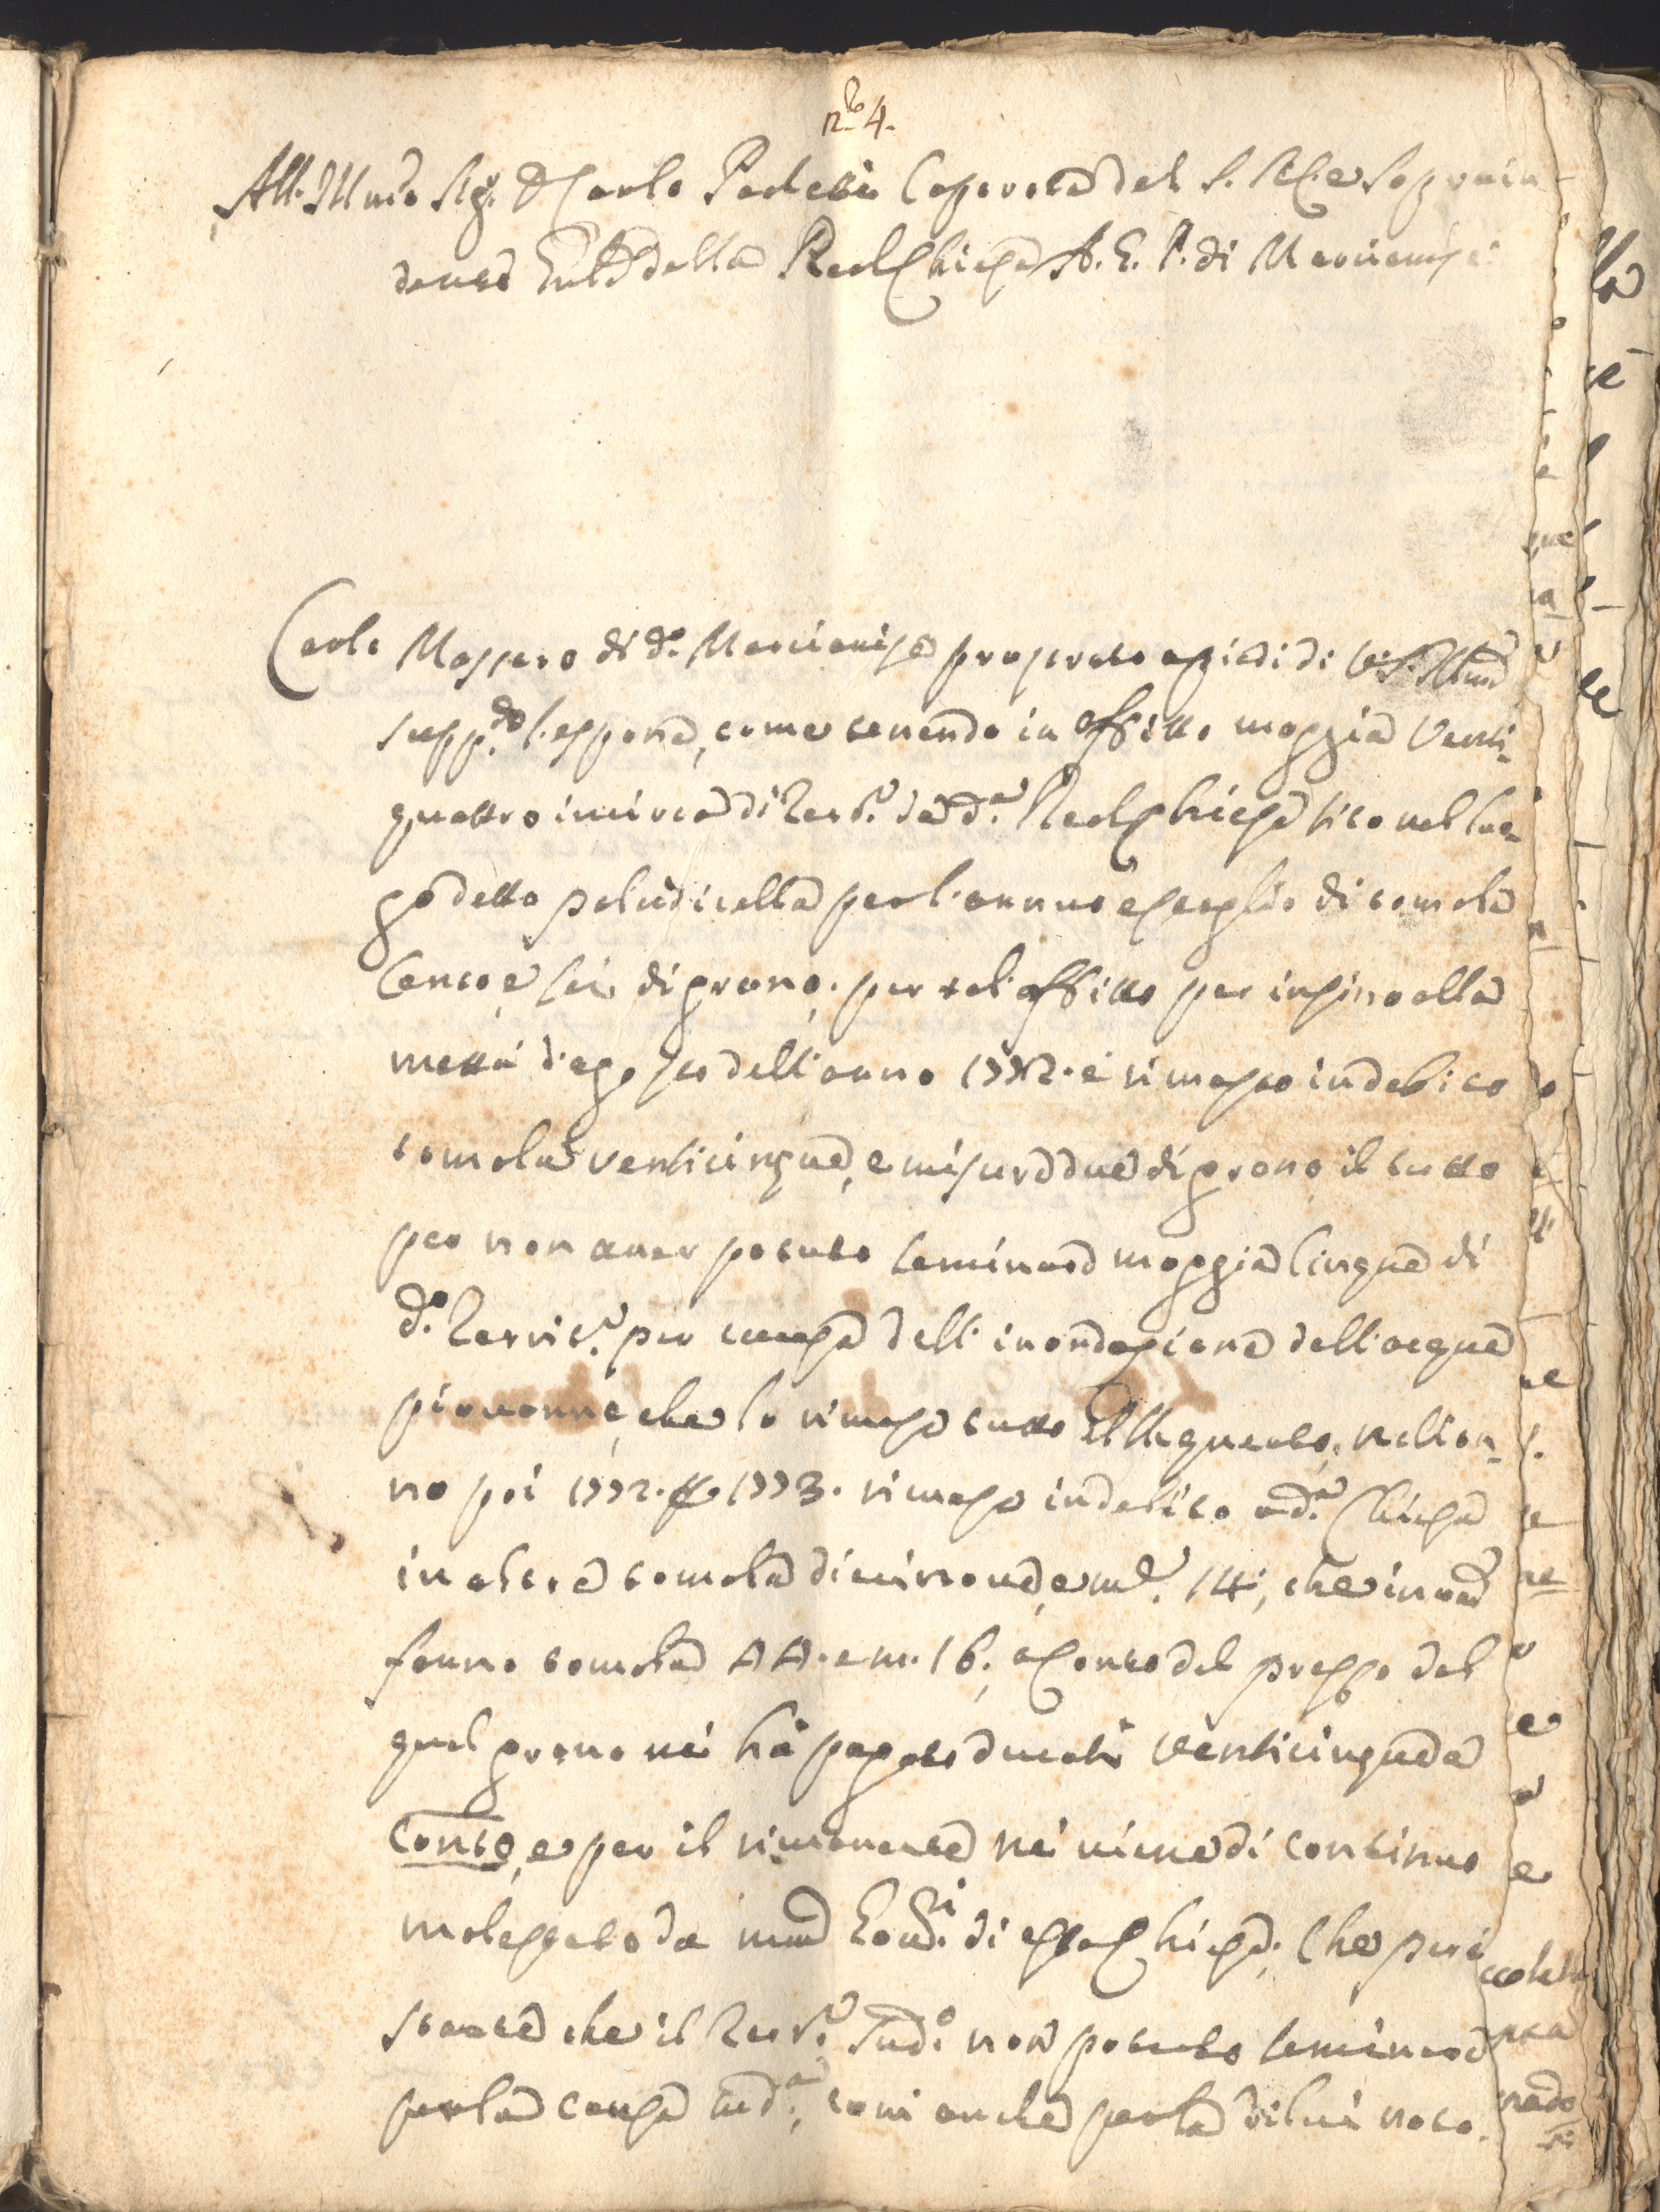 n.ro 4.
All' Ill.mo Sig. D. Carlo Caporota del S. R. C. e Soprain=
della Real Chiesa A. G. P. di Marcianise
Carlo Massaro di d.o Marcianise prostrato a piedi di V. S. Ill.ma
supp.do l'espone, come tenendo in affitto moggia venti=
quattro incirca di Terr.o da d.a Real Chiesa sito nel luo=
go detto paludicella per l'annuo estaglio di tomola
cento, e sei di grano; per tal affitto per insino alla
mettà d'agosto dell'anno 1772. è rimasto in debito
tomola venticinque, e misure due di grano, il tutto
per non aver potuto seminare moggia cinque di
d.o Territ.o per causa dell'inondazione dell'acque
piovanne, che lo rimase tutto allaqueato; nell'an=
no poi 1772. in 1773. rimase in debito a d.a Chiesa
in altre tomola diecinove, e m.e 14; che in uno
fanno tomola 44. e m. 16; a conto del prezzo del
qual grano nè hà pagato ducati venticinque a
conto, e per il rimanente nè viene di continuo
molestato da Econ.i di essa Chiesa; che però
stante che il Terr.o sud.o non potuto seminare
per la causa sud.a, come anche per la di lui nota